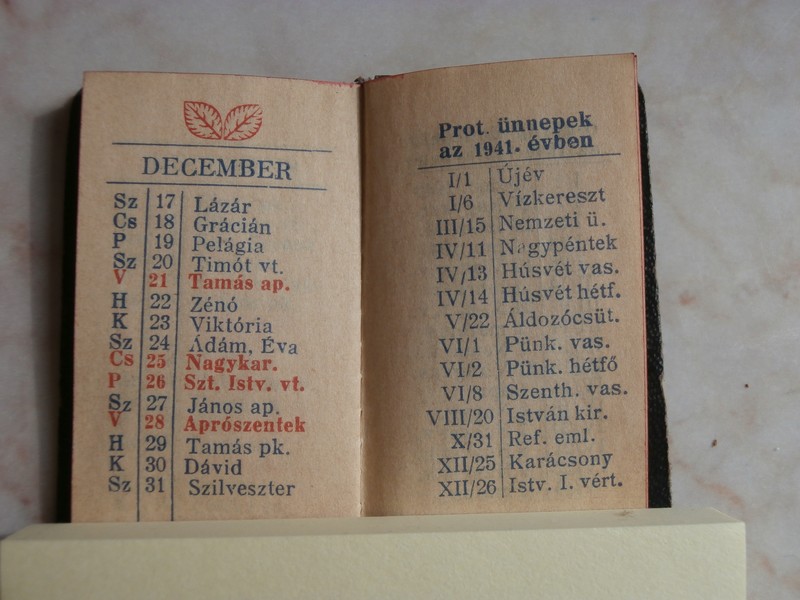 DECEMBER
Sz 17 Lázár
Cs 18 Grácián
P 19 Pelágia
Sz 20 Timót vt.
V 21 Tamás ap.
H 22 Zénó
K 23 Viktória
Sz 24 Ádám, Éva
Cs 25 Nagykar.
P 26 Szt. Istv. vt.
Sz 27 János ap.
V 28 Aprószentek
H 29 Tamás pk.
K 30 Dávid
Sz 31 Szilveszter
Prot. ünnepek
az 1941. évben
I/1 Újév
I/6 Vízkereszt
III/15 Nemzeti ü.
IV/11 Nagypéntek
IV/13 Húsvét vas.
IV/14 Húsvét hétf.
V/22 Áldozócsüt.
VI/1 Pünk. vas.
VI/2 Pünk. hétfő
VI/8 Szenth. vas.
VIII/20 István kir.
X/31 Ref. eml.
XII/25 Karácsony
XII/26 Istv. I. vért.